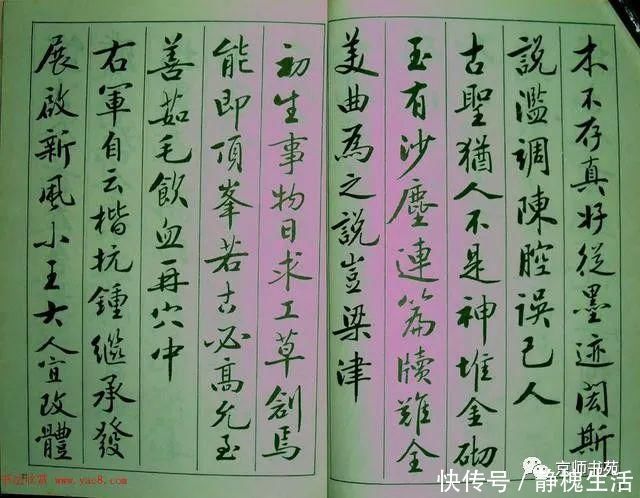 木不存真好從墨迹闳斯
說濫調陳腔误己人
古聖猶人不是神堆金砌
玉有沙塵連篇牘難全
美曲為之說豈梁津
初生事物日求工草創焉
能即頂峯若古必高允至
善茹毛飲血再穴中
右軍自云楷抗鍾繼承發
展啟新風小王大人宜改體
书法欣赏 www.yac8.com
京师书苑
快传号/静槐生活